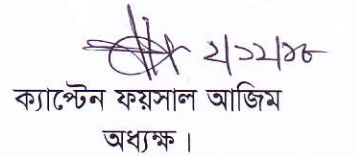 ২/১২/১৮
ক্যাপ্টেন ফয়সাল আজিম
অধ্যক্ষ।